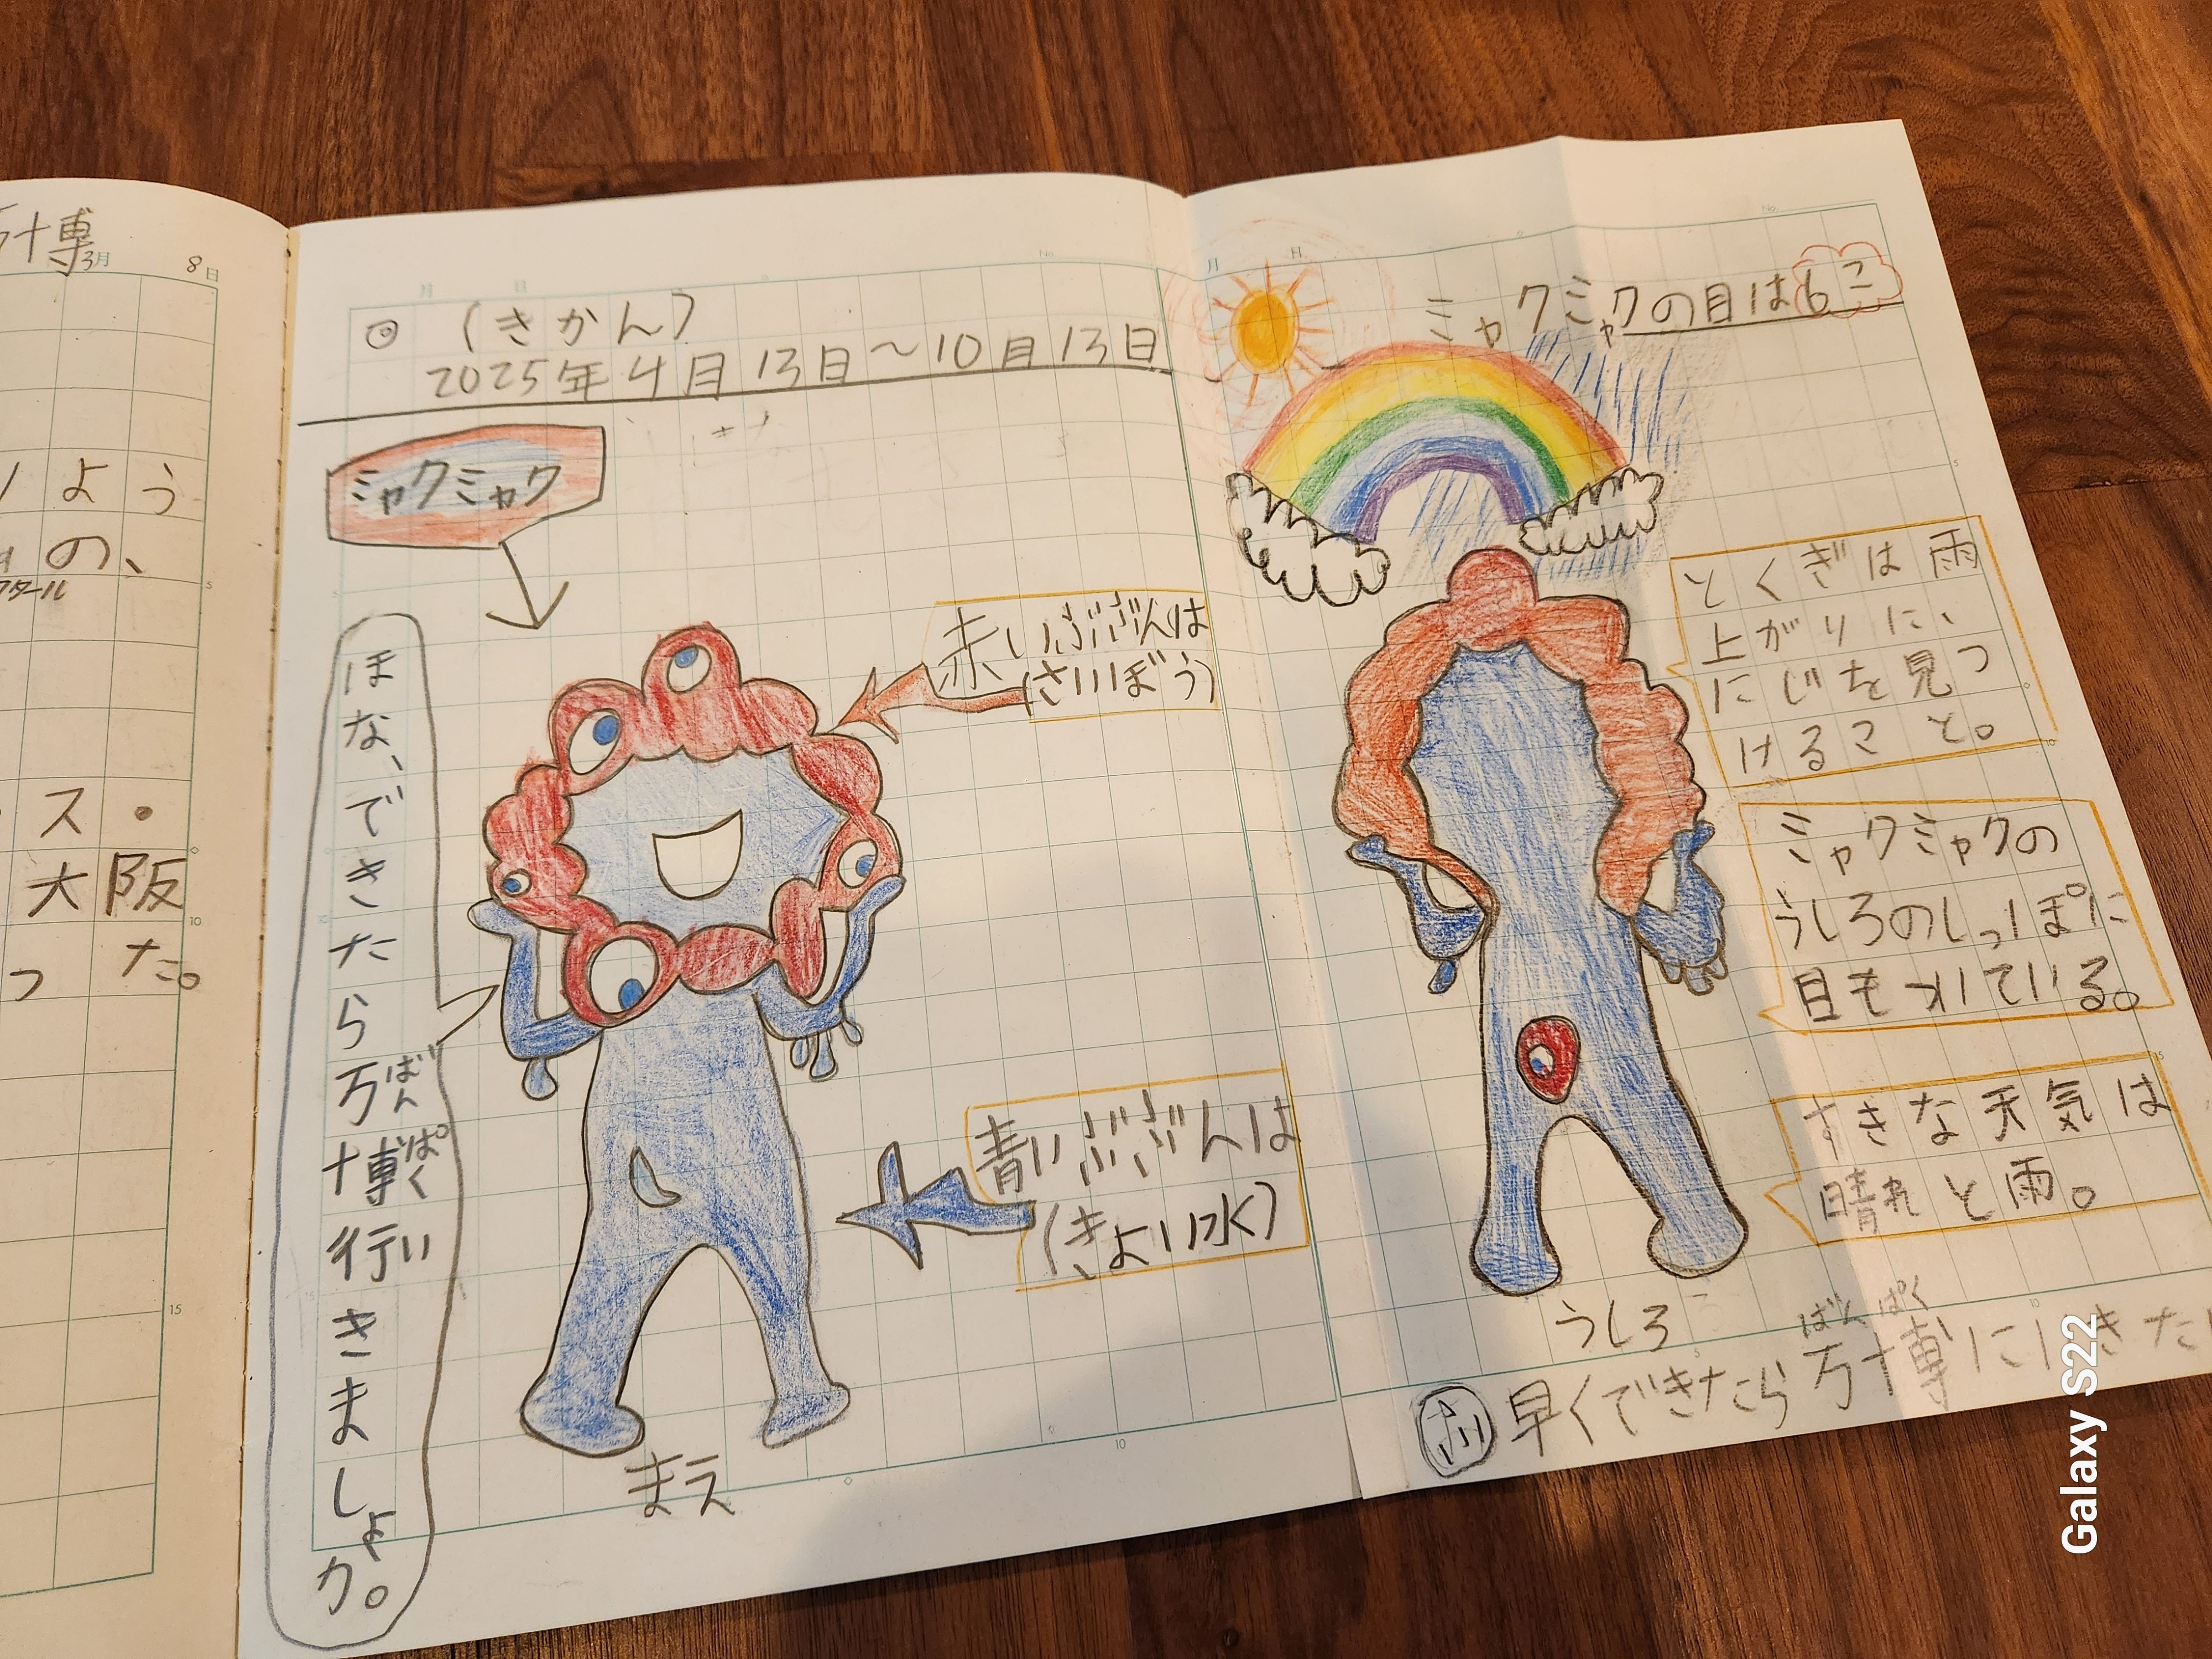 博
3月 8日
よう
の、
ス・
大阪
った。
月 日
◎ (きかん)
2025年4月13日〜10月13日
ミャクミャク
ほな、できたら万博行いきましょか。
ばんぱく
赤いぶぶんは
(さいぼう)
青いぶぶんは
(きよい水)
まえ
月 日
ミャクミャクの目は6こ
とくぎは雨
上がりに、
にじを見つ
けること。
ミャクミャクの
うしろのしっぽに
目もついている。
すきな天気は
晴れと雨。
うしろ
ばんぱく
早くできたら万博にいきた
Galaxy S22